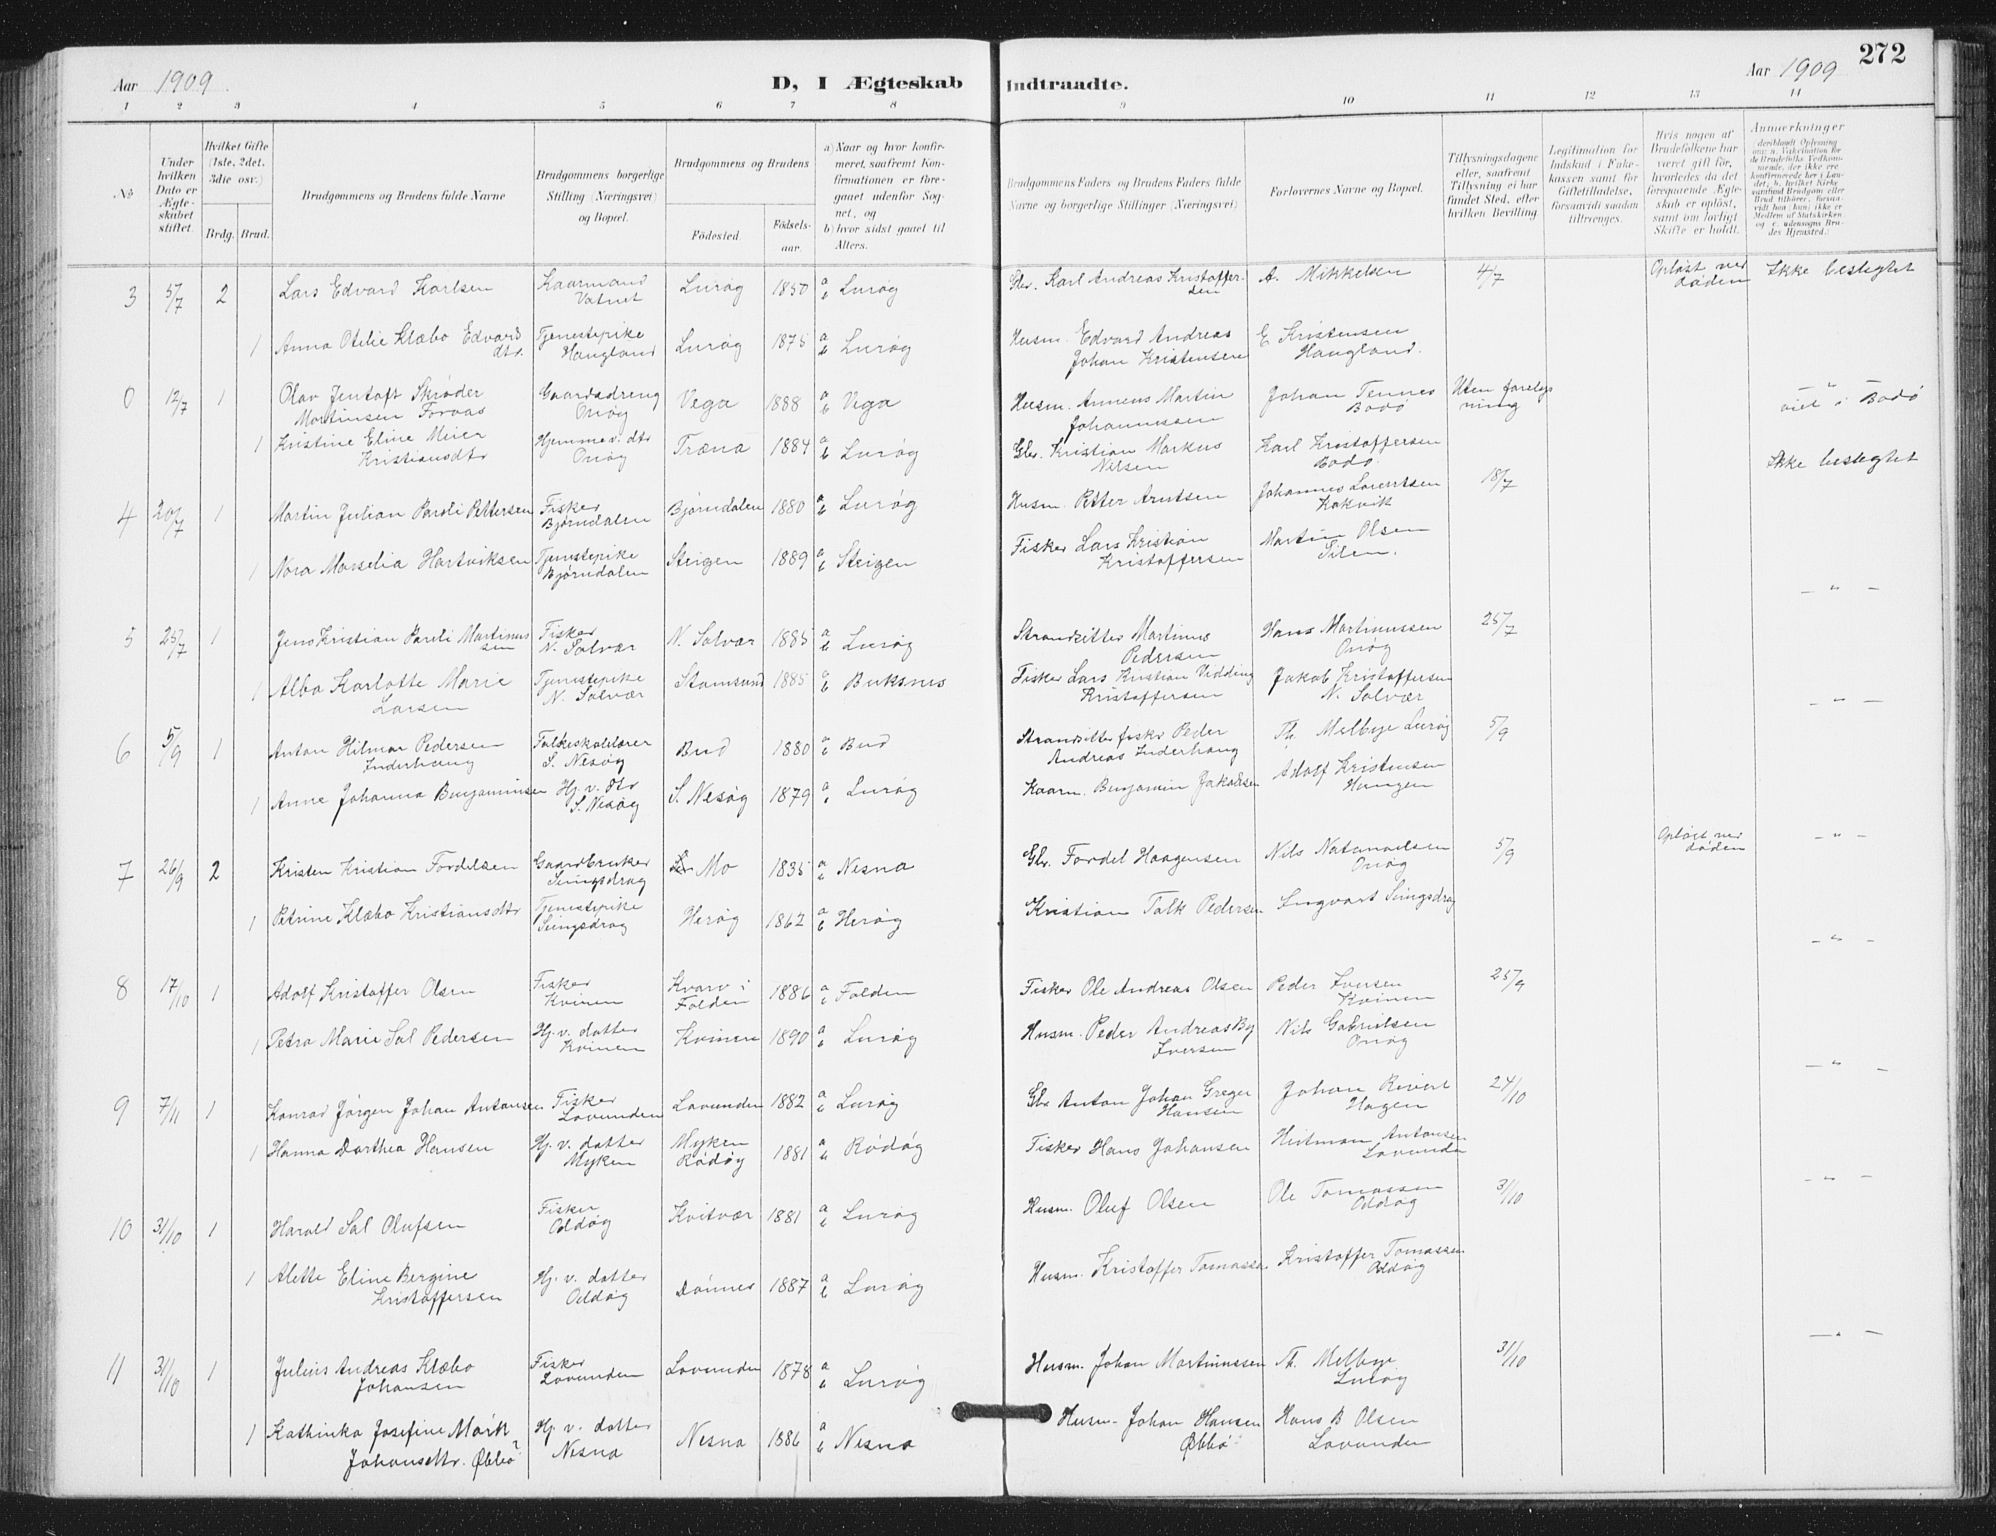 272
Aar 1909
D, I Ægteskab Indtraadte.
Aar 1909
1 2 3 4 5 6 7 8 9 10 11 12 13 14
No
Under hvilken Dato er Ægteskabet stiftet.
Hvilket Gifte (1ste, 2det, 3die osv.)
Brdg. Brud.
Brudgommens og Brudens fulde Navne
Brudgommens borgerlige Stilling (Næringsvei) og Bopæl.
Brudgommens og Brudens
Fødested.
Fødselsaar.
a) Naar og hvor konfirmeret, saafremt Konfirmationen er foregaaet udenfor Sognet, og
b) hvor sidst gaaet til Alters.
Brudgommens Faders og Brudens Faders fulde Navne og borgerlige Stillinger (Næringsvei)
Forlovernes Navne og Bopæl.
Tillysningsdagene eller, saafremt Tillysning ei har fundet Sted, efter hvilken Bevilling
Legitimation for Indskud i Enkekassen samt for Giftetilladelse, forsaavidt saadan tiltrænges.
Hvis nogen af Brudefolkene har været gift før, hvorledes da det foregaaende Ægteskab er opløst, samt om lovligt Skifte er holdt.
Anmærkninger
3 5/7 2 Lars Edvard Karlsen Kaarmand Vatnet Lurøy 1850 a b Lurøy Gbr. Karl Andreas Kristoffersen A. Mikkelsen 4/7 Opløst ved døden Ikke beslegtet
1 Anna Otilie Klæbo Edvardsdtr. Tjenestepike Haugland Lurøy 1875 a b Lurøy Husm. Edvard Andreas Johan Kristensen E Kristensen Haugland.
0 12/7 1 Olav Jentoft Skrøder Martinsen Forvas Gaardsdreng Onøy Vega 1888 a b Vega Husm. Annens Martin Johannessen Johan Tennes Bodø Uten forelysning viet i Bodø
1 Kristine Eline Meier Kristiansdtr Hjemmev. dtr Onøy Træna 1884 a b Lurøy Gbr. Kristian Markus Nilsen Karl Kristoffersen Bodø. Ikke beslegtet
4 20/7 1 Martin Julian Pauli Pettersen Fisker Bjørndalen Bjørndalen 1880 a b Lurøy Husm. Petter Arntsen Johannes Lorentsen Kokvik 18/7
1 Nora Marselia Hartviksen Tjenestepike Bjørndalen Steigen 1889 a b Steigen Fisker Lars Kristian Kristoffersen Martin Olsen Silen. - " -
5 25/7 1 Jens Kristian Pauli Martinussen Fisker N. Solvær N. Solvær 1885 a b Lurøy Strandsitter Martinus Pedersen Hans Martinussen Onøy 25/7
1 Alba Karlotte Marie Larsen Tjenestepike N. Solvær Stamsund 1885 a b Buksnes Fisker Lars Kristian Vidding Kristoffersen Jakob Kristoffersen N. Solvær - " -
6 5/9 1 Anton Hilmar Pedersen Inderhaug Folkeskolelærer S. Nesøy Bud 1880 a b Bud Strandsitter fisker Peder Andreas Inderhaug Th. Melbye Lurøy 5/9
1 Anne Johanna Benjaminsen Hj. v. dtr S. Nesøy S. Nesøy 1879 a b Lurøy Kaarm. Benjamin Jakobsen Adolf Kristensen Haugen
7 26/9 2 Kristen Kristian Fordelsen Gaardbruker Seingsdrag Mo 1835 a b Nesna Gbr. Fordel Haagensen Nils Natanaelsen Onøy 5/9 Opløst ved døden - " -
1 Petrine Klæbo Kristiansdtr Tjenestepike Seingsdrag Herøy 1862 a b Herøy Kristian Falk Pedersen Ingvart Seingsdrag - " -
8 17/10 1 Adolf Kristoffer Olsen Fisker Kvinen Kvarv i Folden 1886 a b Folden Fisker Ole Andreas Olsen Peder Iversen Kvinen 25/9
1 Petra Marie Sol Pedersen Hj. v. datter Kvinen Kvinen 1890 a b Lurøy Husm. Peder Andreas By Iversen Nils Gabrielsen Onøy - " -
9 7/11 1 Konrad Jørgen Johan Antonsen Fisker Lovunden Lovunden 1882 a b Lurøy Gbr Anton Johan Greger Hansen Johan Rivert Hagen 24/10
1 Hanna Dorthea Hansen Hj. v. datter Myken Myken Rødøy 1881 a b Rødøy Fisker Hans Johansen Heitman Antonsen Lovunden - " -
10 31/10 1 Harald Sol Olufsen Fisker Oldøy Kvitvær 1881 a b Lurøy Husm. Oluf Olsen Ole Tomassen Oldøy 31/10
1 Alette Eline Bergine Kristoffersen Hj. v. datter Oldøy Dønnes 1887 a b Lurøy Husm. Kristoffer Tomassen Kristoffer Tomassen Oldøy - " -
11 31/10 1 Julius Andreas Klæbo Johansen Fisker Lovunden Lovunden 1878 a b Lurøy Husm. Johan Martinussen Th. Melbye Lurøy 31/10
1 Kathinka Josefine Mørk Johansdtr. Øbbø Hj. v. datter Nesna Nesna 1886 a b Nesna Husm. Johan Hansen Øbbø Hans B Olsen Lovunden